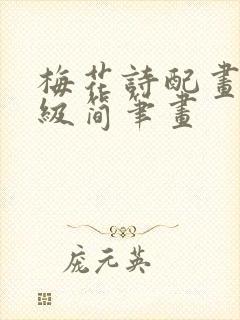 梅花詩配畫
級简筆畫
庞元英